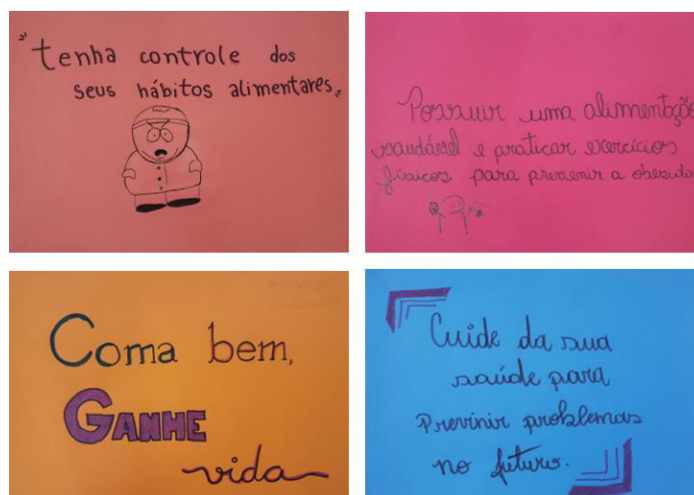 "tenha controle dos
seus hábitos alimentares"
Possuir uma alimentação
saudável e praticar exercícios
físicos para prevenir a obesida
Coma bem,
GANHE
vida
Cuide da sua
saúde para
Previnir problemas
no futuro.